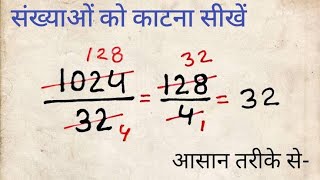 संख्याओं को काटना सीखें
128 32
1024/32 4 = 128/4 1 = 32
आसान तरीके से-